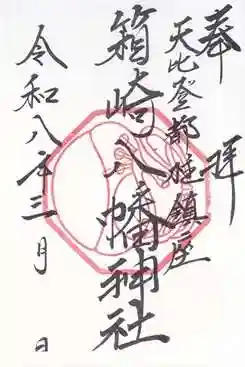 奉拝
天比登都柱鎮座
箱崎八幡神社
令和八年三月 日